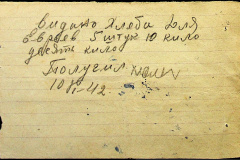 видано хлеба для
евреев 5 штук 10 кило
десять кило
Получил
10/V-42